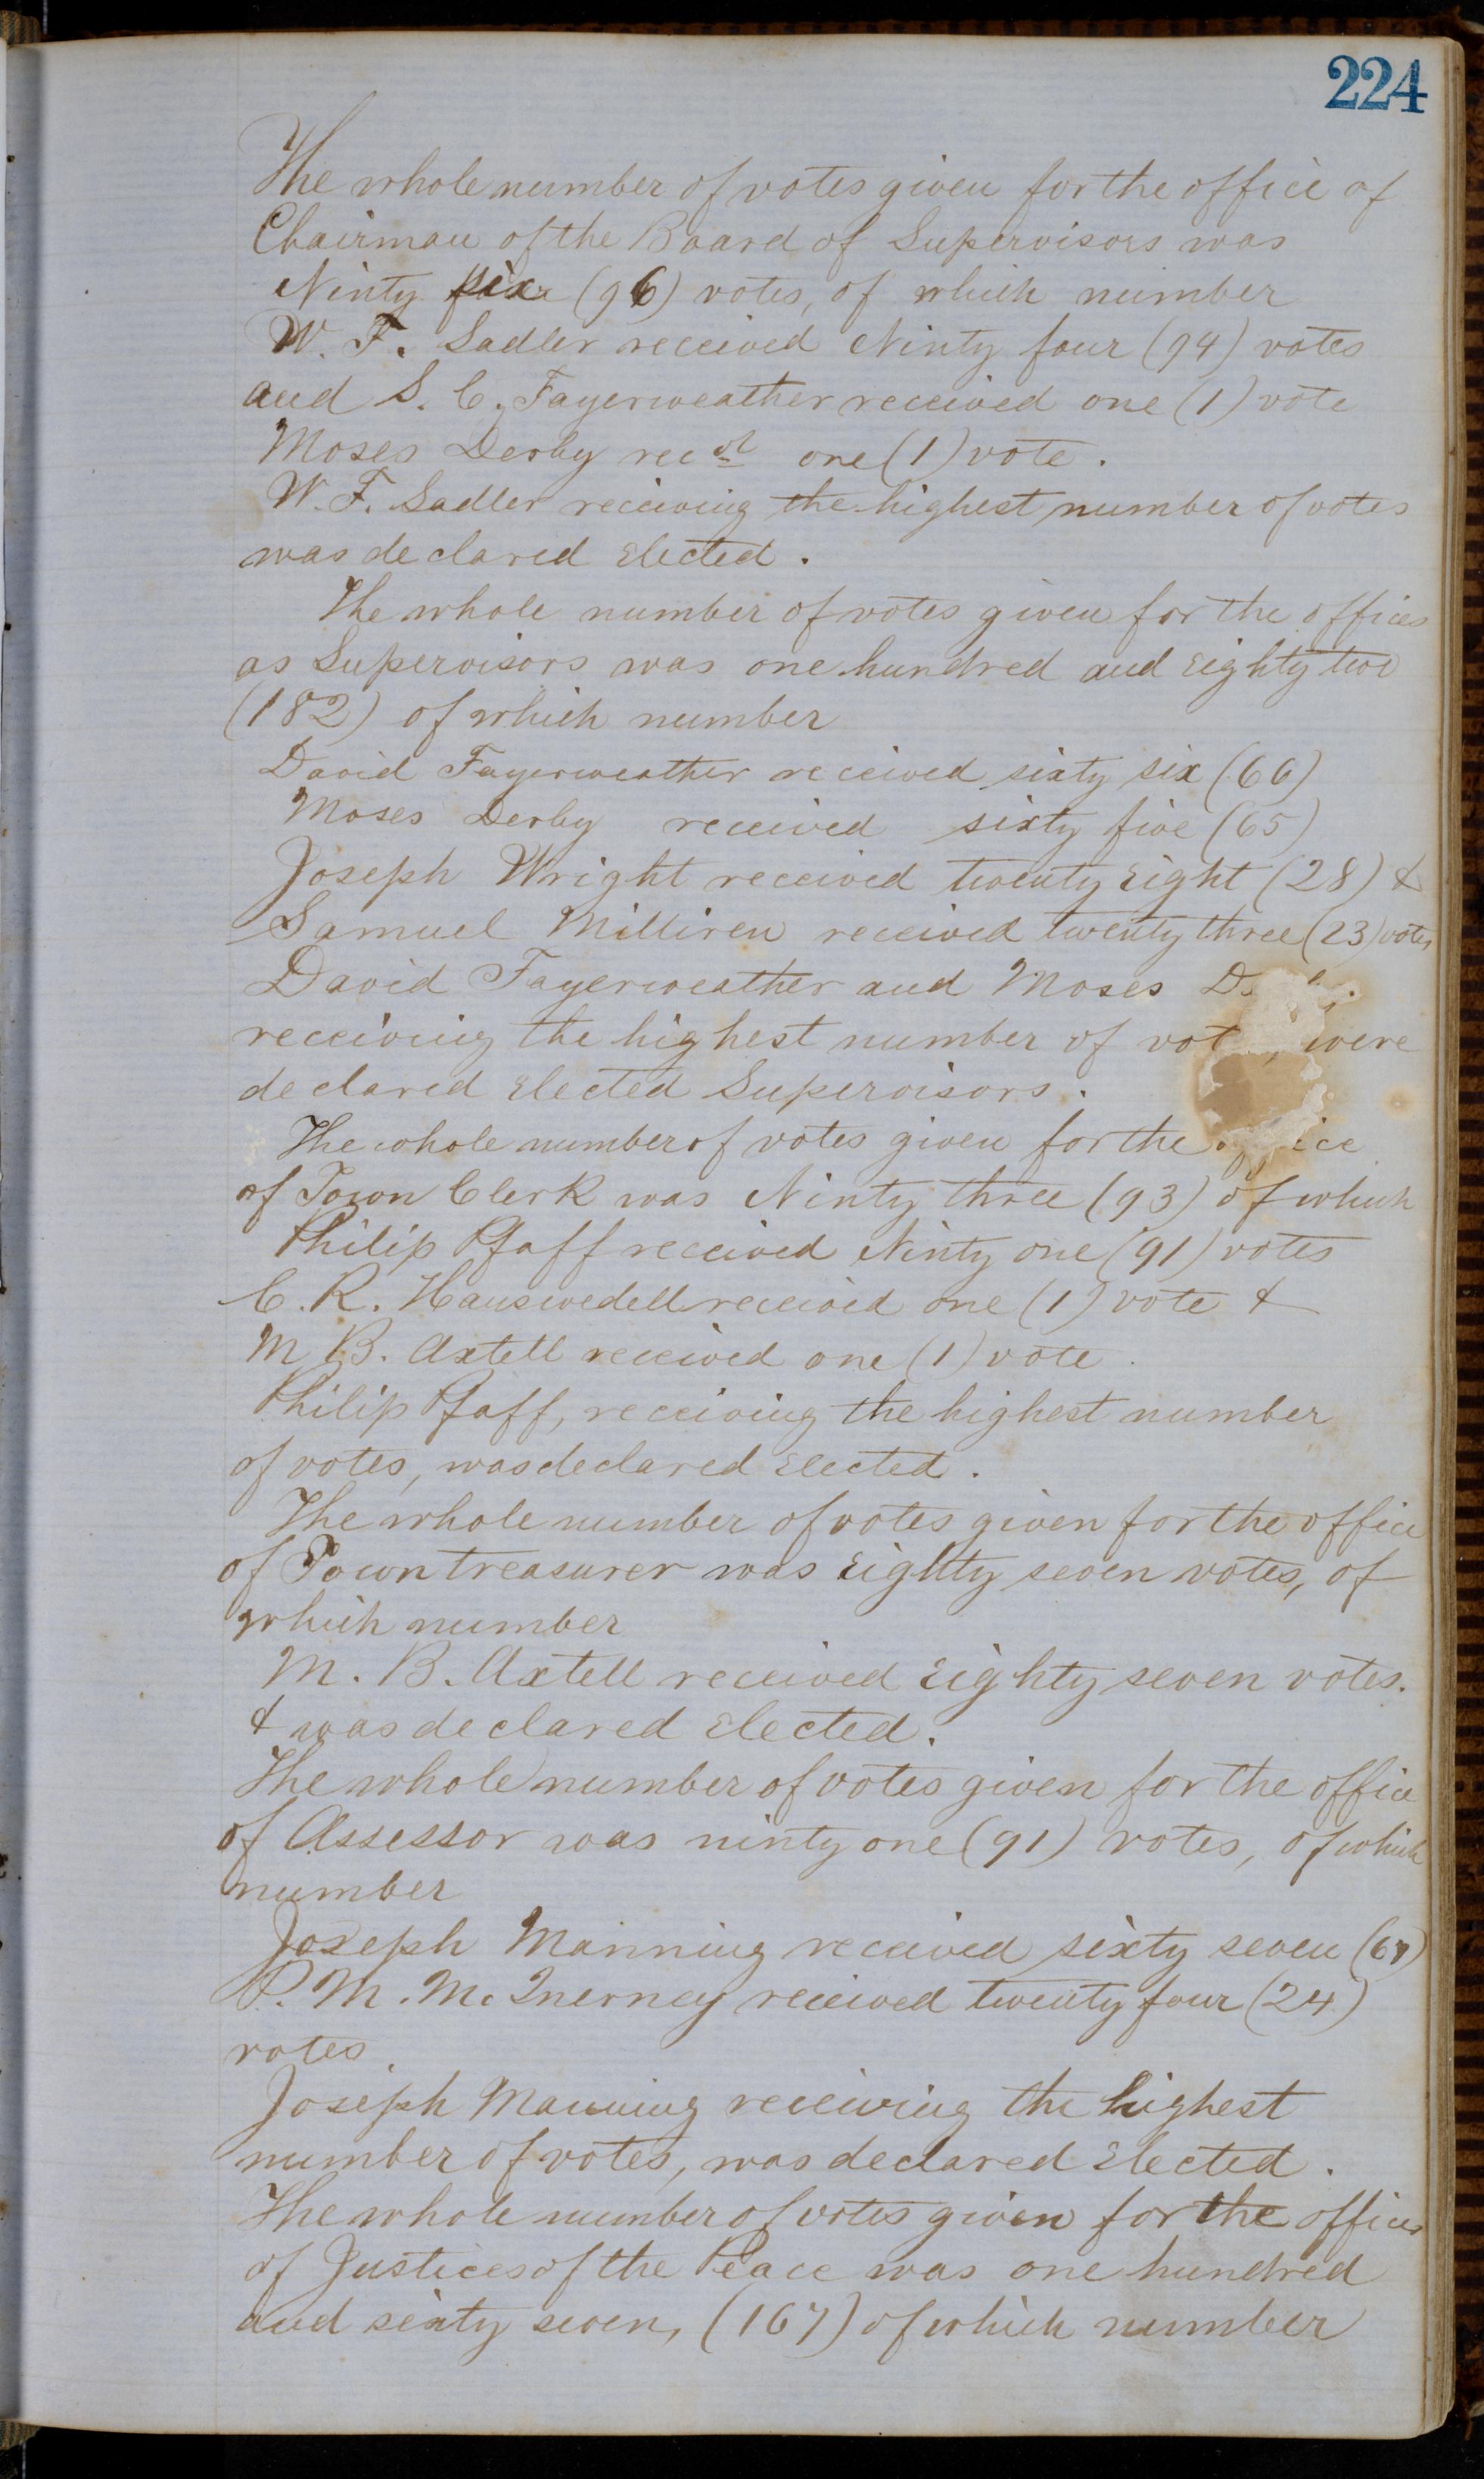 224
The whole number of votes given for the office of
Chairman of the Board of Supervisors was
Ninty six (96) votes, of which number
W. F. Sadler received Ninty four (94) votes
and S. C. Fayerweather received one (1) vote
Moses Derby recd one (1) vote.
W. F. Sadler receiving the highest number of votes
was declared Elected.
The whole number of votes given for the offices
as Supervisors was one hundred and Eighty two
(182) of which number
David Fayerweather received sixty six (66)
Moses Derby received sixty five (65)
Joseph Wright received twenty Eight (28) &
Samuel Milliren received twenty three (23) votes
David Fayerweather and Moses
receiving the highest number of were
declared Elected Supervisors.
The whole number of votes given for the
of Town Clerk was Ninty three (93) of which
Philip Pfaff received Ninty one (91) votes
C. R. Hauswedell received one (1) vote &
M B. Axtell received one (1) vote.
Philip Pfaff, receiving the highest number
of votes, was declared Elected.
The whole number of votes given for the office
of Town treasurer was Eighty seven votes, of
which number
M. B. Axtell received Eighty seven votes.
& was declared Elected.
The whole number of votes given for the office
of Assessor was ninty one (91) votes, of which
number
Joseph Manning received sixty seven (67)
P. M. McInerney received twenty four (24)
votes.
Joseph Manning receiving the highest
number of votes, was declared Elected.
The whole number of votes given for the offices
of Justices of the Peace was one hundred
and sixty seven, (167) of which number